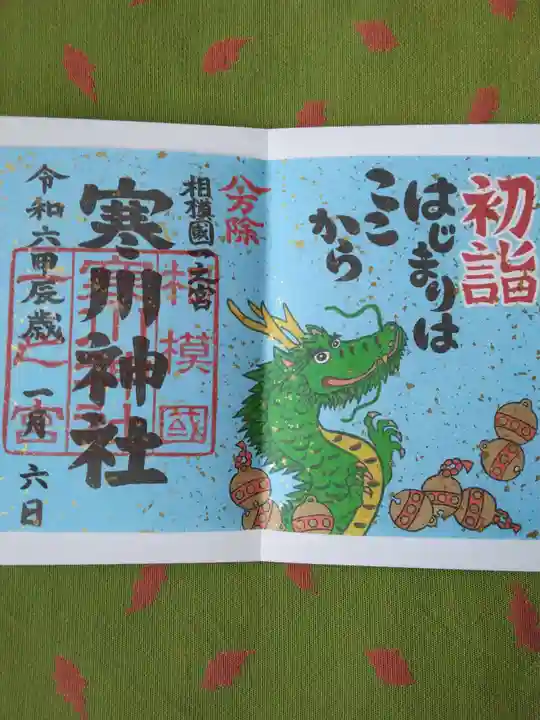 初詣
はじまりは
ここ
から
八方除
相模國一之宮
寒川神社
相模國
寒川神社
一之宮
令和六甲辰歳 一月 六日